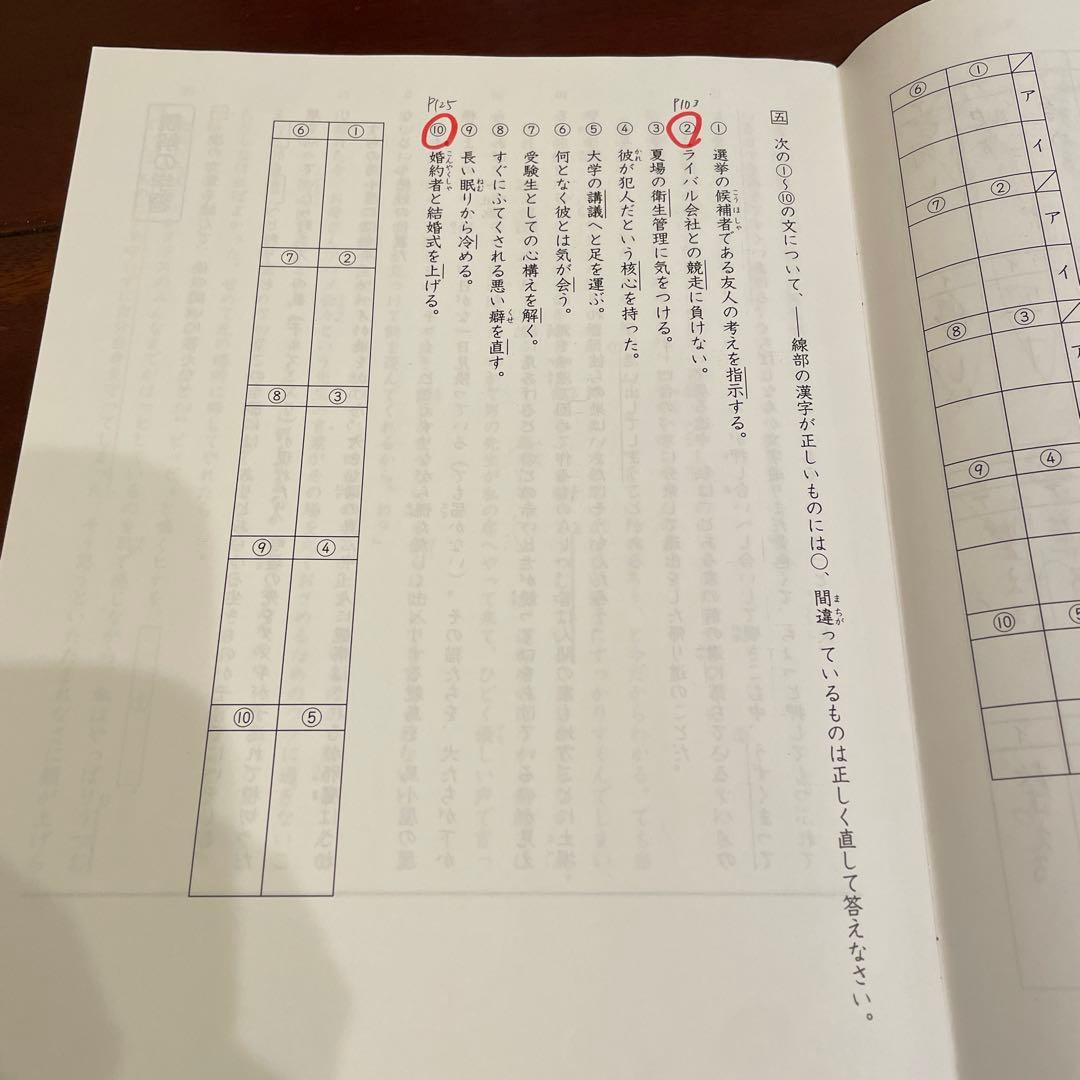 五 次の①～⑩の文について、――線部の漢字が正しいものには○、間違っているものは正しく直して答えなさい。
まちが
① 選挙の候補者である友人の考えを指示する。
こうほしゃ
P103
② ライバル会社との競走に負けない。
③ 夏場の衛生管理に気をつける。
④ 彼が犯人だという核心を持った。
かれ
⑤ 大学の講議へと足を運ぶ。
⑥ 何となく彼とは気が会う。
⑦ 受験生としての心構えを解く。
⑧ すぐにふてくされる悪い癖を直す。
くせ
⑨ 長い眠りから冷める。
ねむ
P125
⑩ 婚約者と結婚式を上げる。
こんやくしゃ
① ② ③ ④ ⑤
⑥ ⑦ ⑧ ⑨ ⑩
ア イ ア イ ア
① ② ③ ④ ⑤
⑥ ⑦ ⑧ ⑨ ⑩